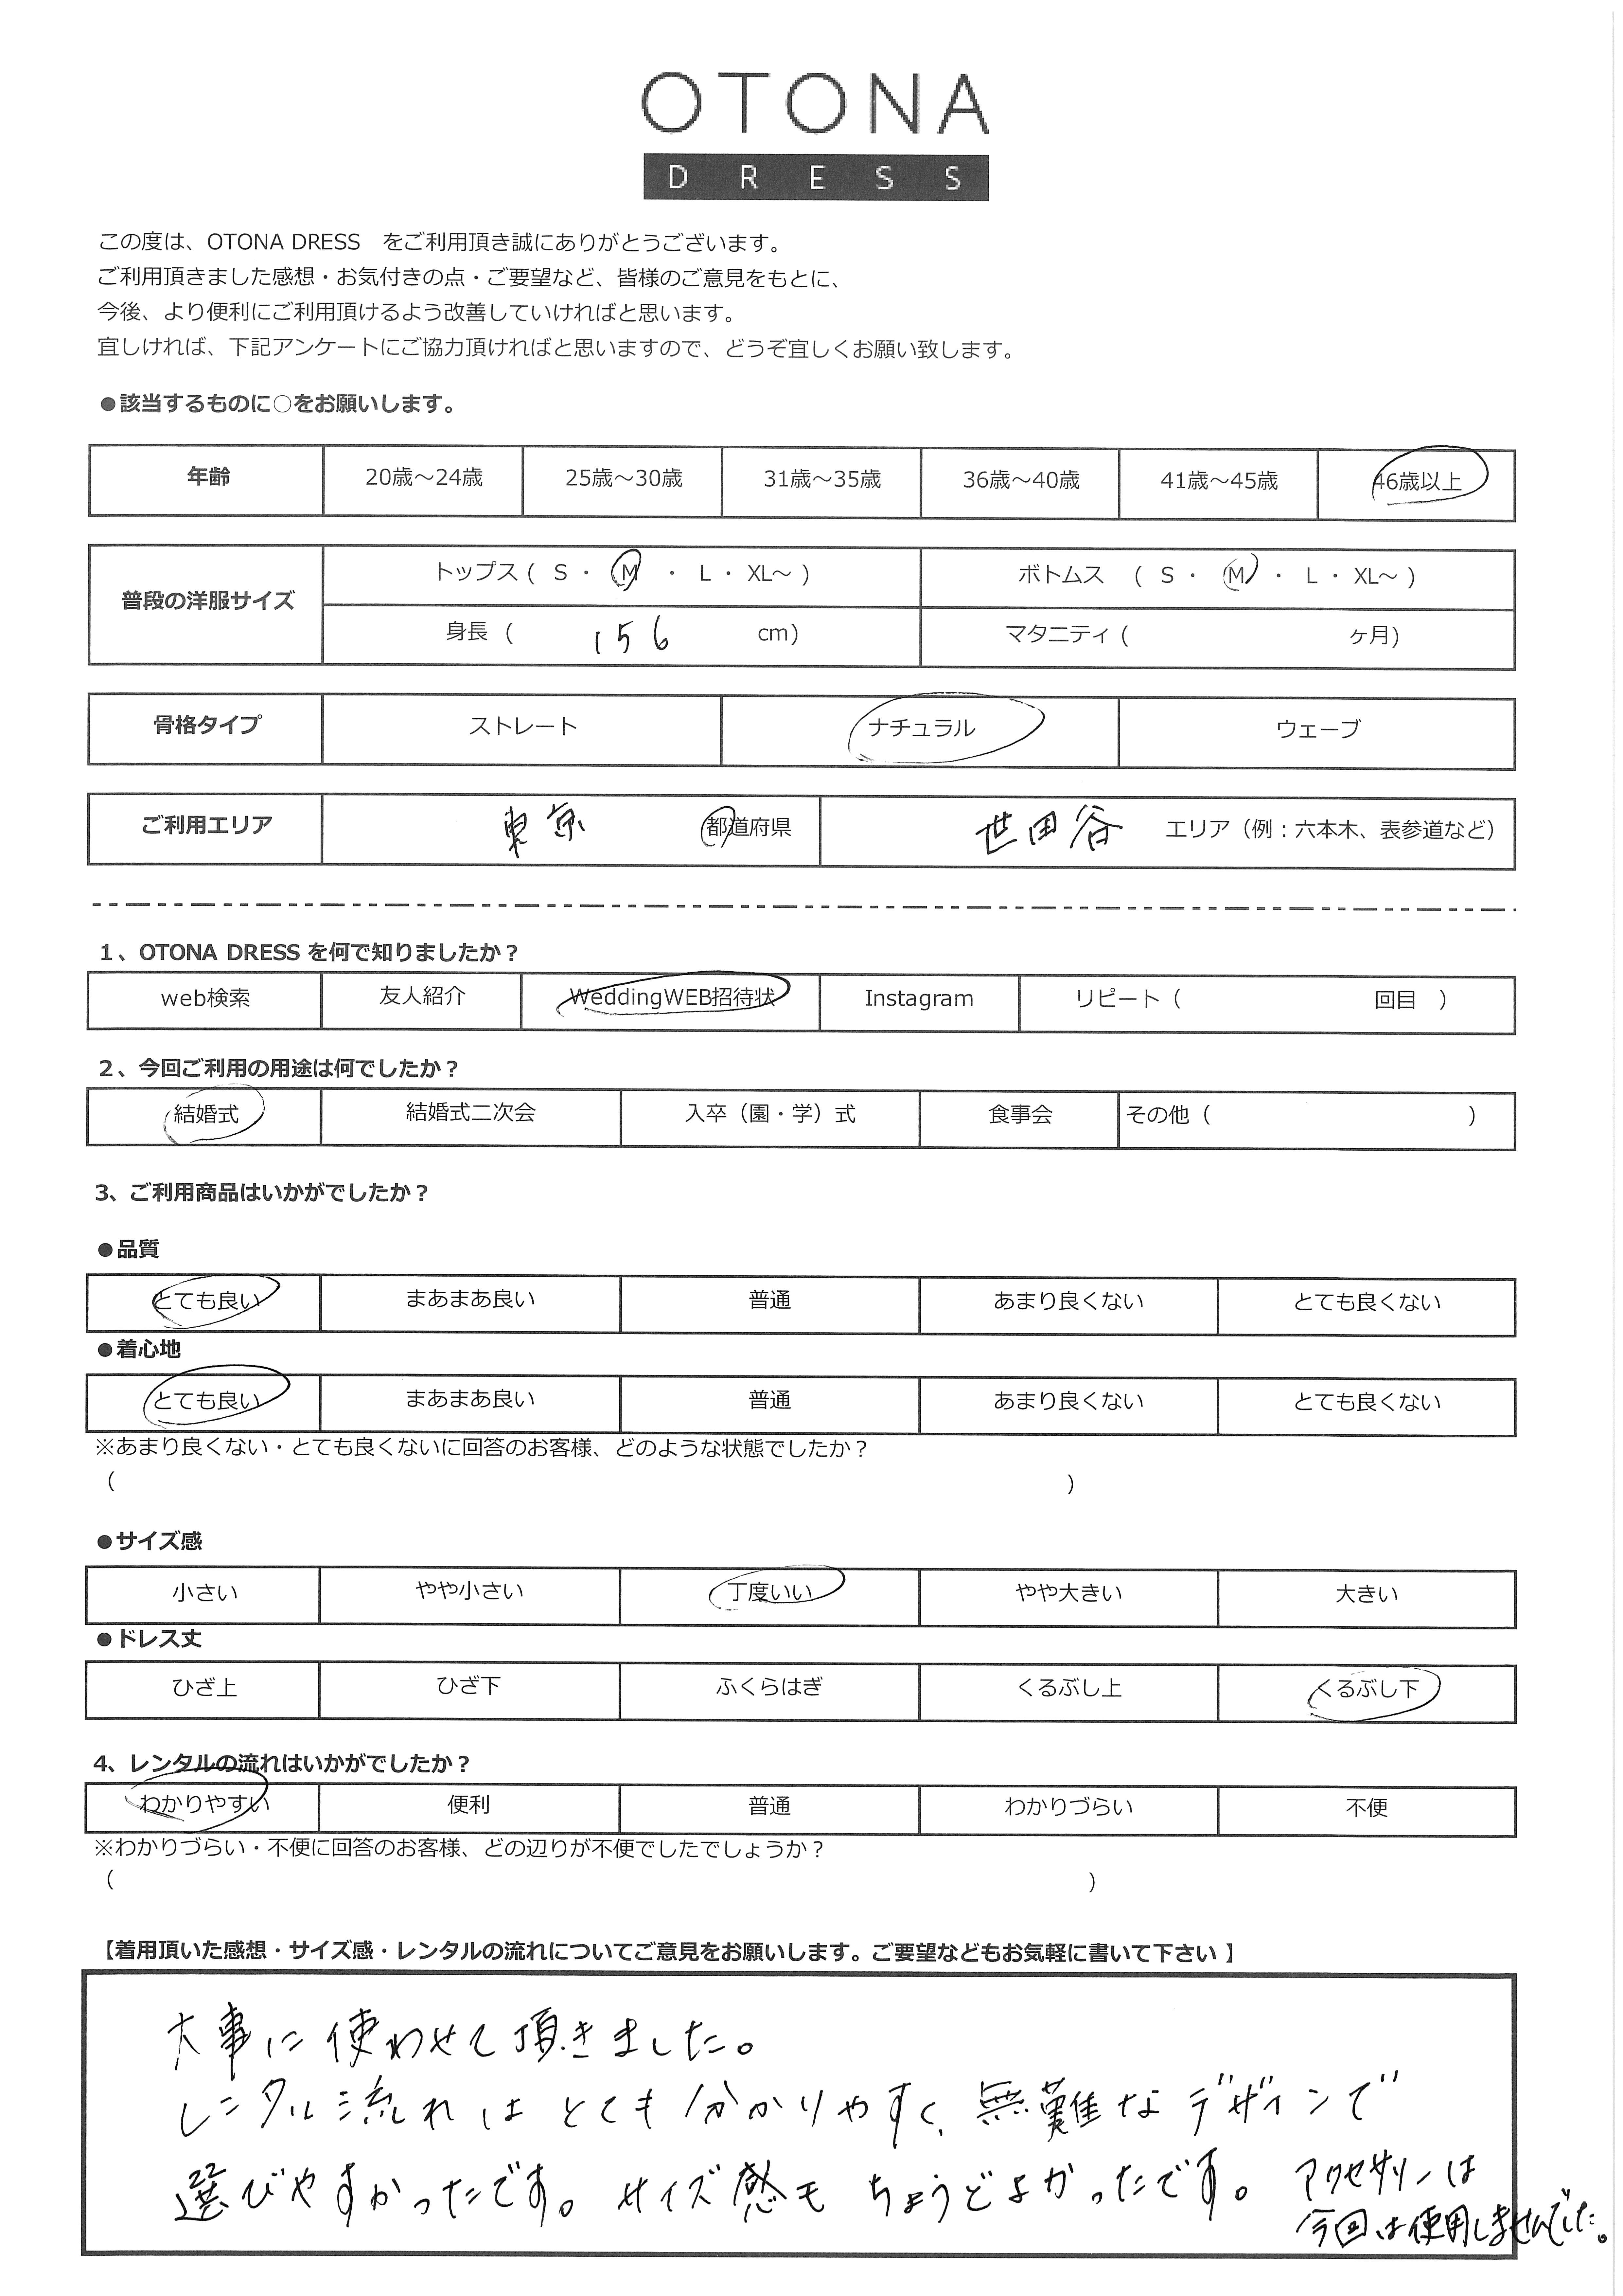 OTONA
DRESS
この度は、OTONA DRESS　をご利用頂き誠にありがとうございます。
ご利用頂きました感想・お気付きの点・ご要望など、皆様のご意見をもとに、
今後、より便利にご利用頂けるよう改善していければと思います。
宜しければ、下記アンケートにご協力頂ければと思いますので、どうぞ宜しくお願い致します。
●該当するものに○をお願いします。
年齢 20歳～24歳 25歳～30歳 31歳～35歳 36歳～40歳 41歳～45歳 46歳以上
普段の洋服サイズ トップス（ S ・ M ・ L ・ XL～ ） ボトムス （ S ・ M ・ L ・ XL～ ）
身長（ 156 cm） マタニティ（ ヶ月）
骨格タイプ ストレート ナチュラル ウェーブ
ご利用エリア 東京 都道府県 世田谷 エリア（例：六本木、表参道など）
1、OTONA DRESS を何で知りましたか？
web検索 友人紹介 WeddingWEB招待状 Instagram リピート（ 回目 ）
2、今回ご利用の用途は何でしたか？
結婚式 結婚式二次会 入卒（園・学）式 食事会 その他（ ）
3、ご利用商品はいかがでしたか？
●品質
とても良い まあまあ良い 普通 あまり良くない とても良くない
●着心地
とても良い まあまあ良い 普通 あまり良くない とても良くない
※あまり良くない・とても良くないに回答のお客様、どのような状態でしたか？
（ ）
●サイズ感
小さい やや小さい 丁度いい やや大きい 大きい
●ドレス丈
ひざ上 ひざ下 ふくらはぎ くるぶし上 くるぶし下
4、レンタルの流れはいかがでしたか？
わかりやすい 便利 普通 わかりづらい 不便
※わかりづらい・不便に回答のお客様、どの辺りが不便でしたでしょうか？
（ ）
【着用頂いた感想・サイズ感・レンタルの流れについてご意見をお願いします。ご要望などもお気軽に書いて下さい】
大事に使わせて頂きました。
レンタル流れはとても分かりやすく、無難なデザインで
選びやすかったです。サイズ感もちょうどよかったです。アクセサリーは
今回は使用しませんでした。